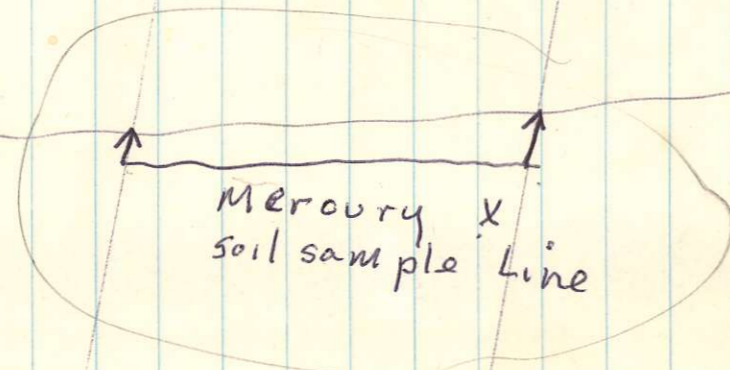 Mercury X
soil sample Line